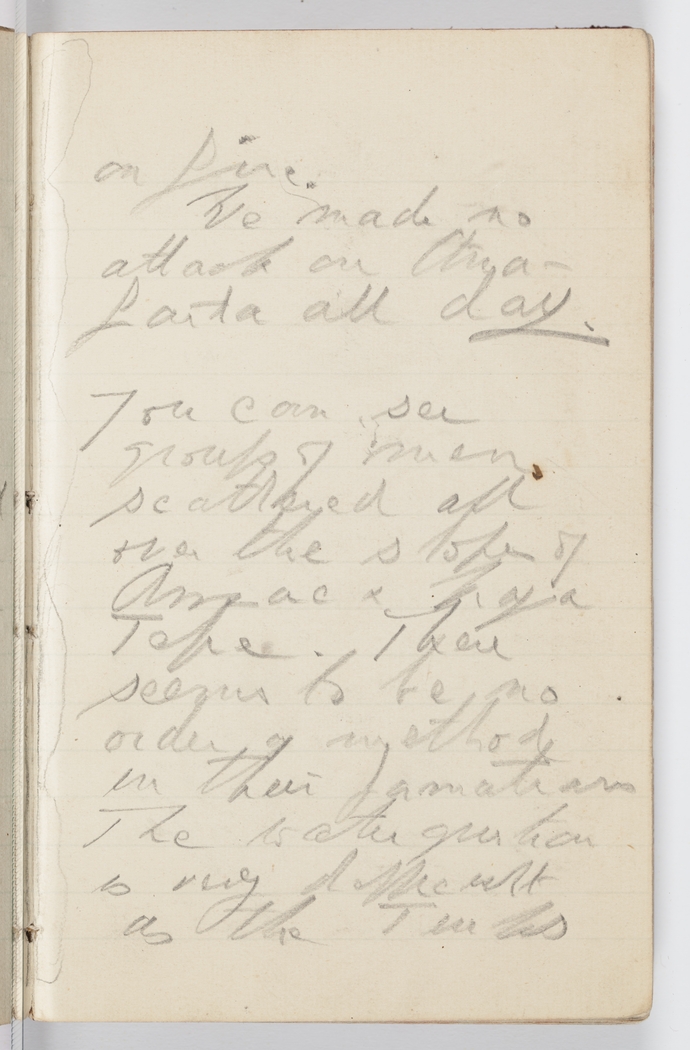 on fire.
We made no
attack on Ana-
farta all day.
You can see
groups of men
scattered all
over the slopes of
Anzac & Gaba
Tepe. There
seems to be no
order or method
in their formations
The water question
is very difficult
as the Turks